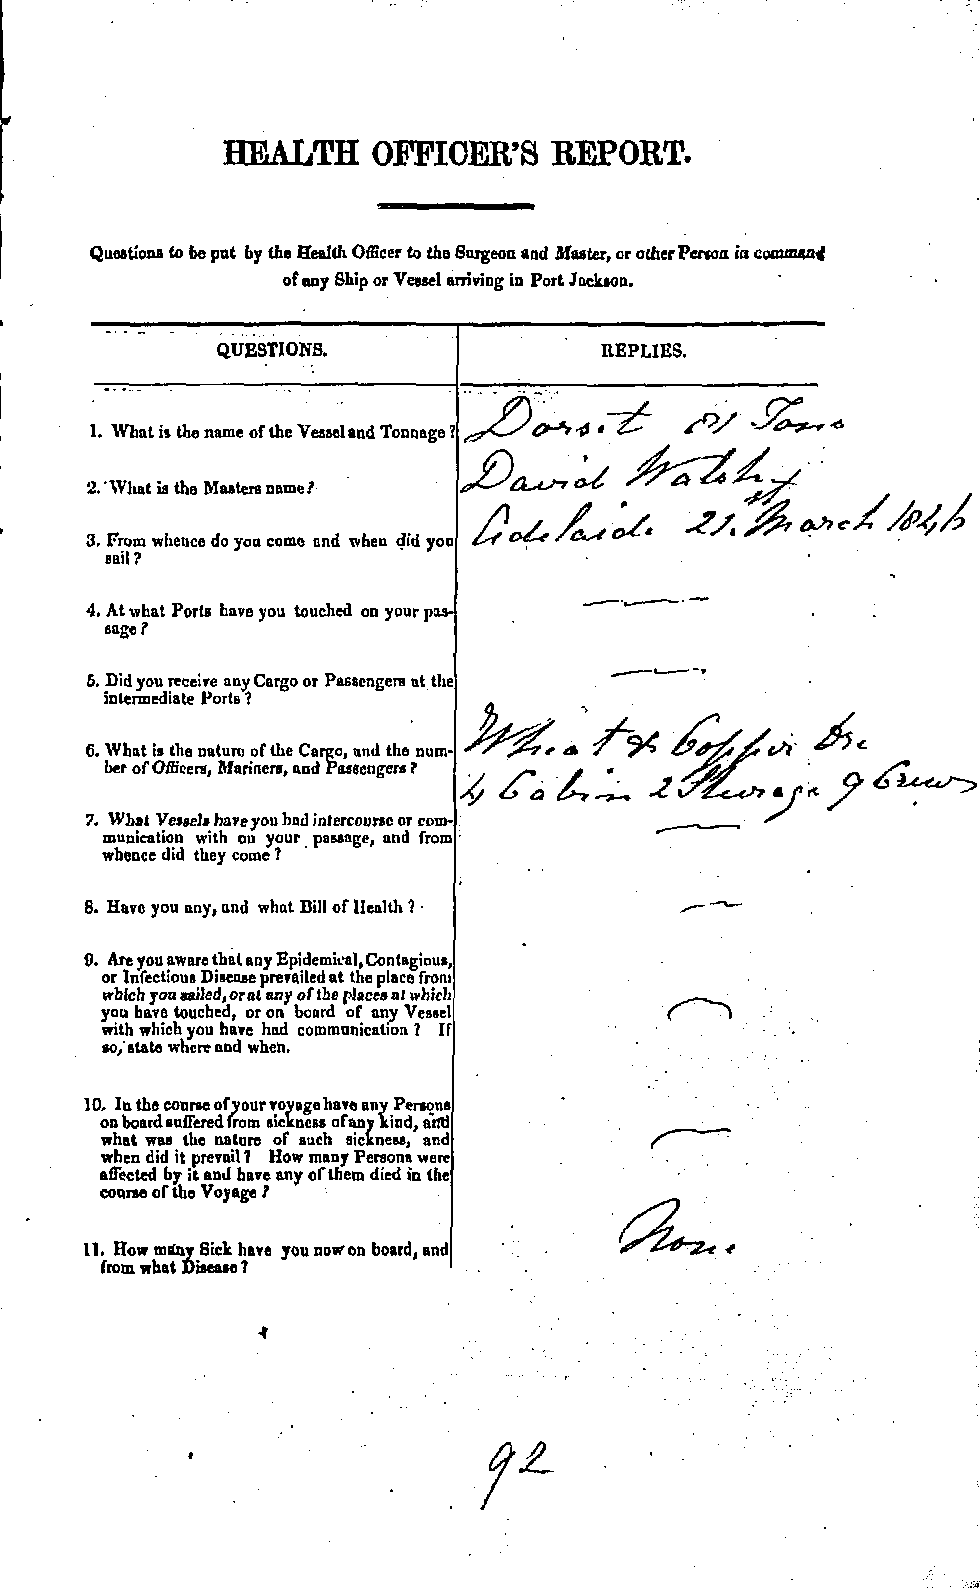 HEALTH OFFICER'S REPORT.
Questions to be put by the Health Officer to the Surgeon and Master, or other Person in command
of any Ship or Vessel arriving in Port Jackson.
QUESTIONS.
REPLIES.
1. What is the name of the Vessel and Tonnage?
Dorset 81 Tons
2. What is the Masters name?
David Walsh
3. From whence do you come and when did you
sail?
Adelaide 21st March 1846
4. At what Ports have you touched on your pas-
sage?
5. Did you receive any Cargo or Passengers at the
intermediate Ports?
6. What is the nature of the Cargo, and the num-
ber of Officers, Mariners, and Passengers?
Wheat & Copper Ore
4 Cabin 2 Steerage 9 Crew
7. What Vessels have you had intercourse or com-
munication with on your passage, and from
whence did they come?
8. Have you any, and what Bill of Health?
9. Are you aware that any Epidemical, Contagious,
or Infectious Disease prevailed at the place from
which you sailed, or at any of the places at which
you have touched, or on board of any Vessel
with which you have had communication? If
so, state where and when.
10. In the course of your voyage have any Persons
on board suffered from sickness of any kind, and
what was the nature of such sickness, and
when did it prevail? How many Persons were
affected by it and have any of them died in the
course of the Voyage?
11. How many Sick have you now on board, and
from what Disease?
None
92